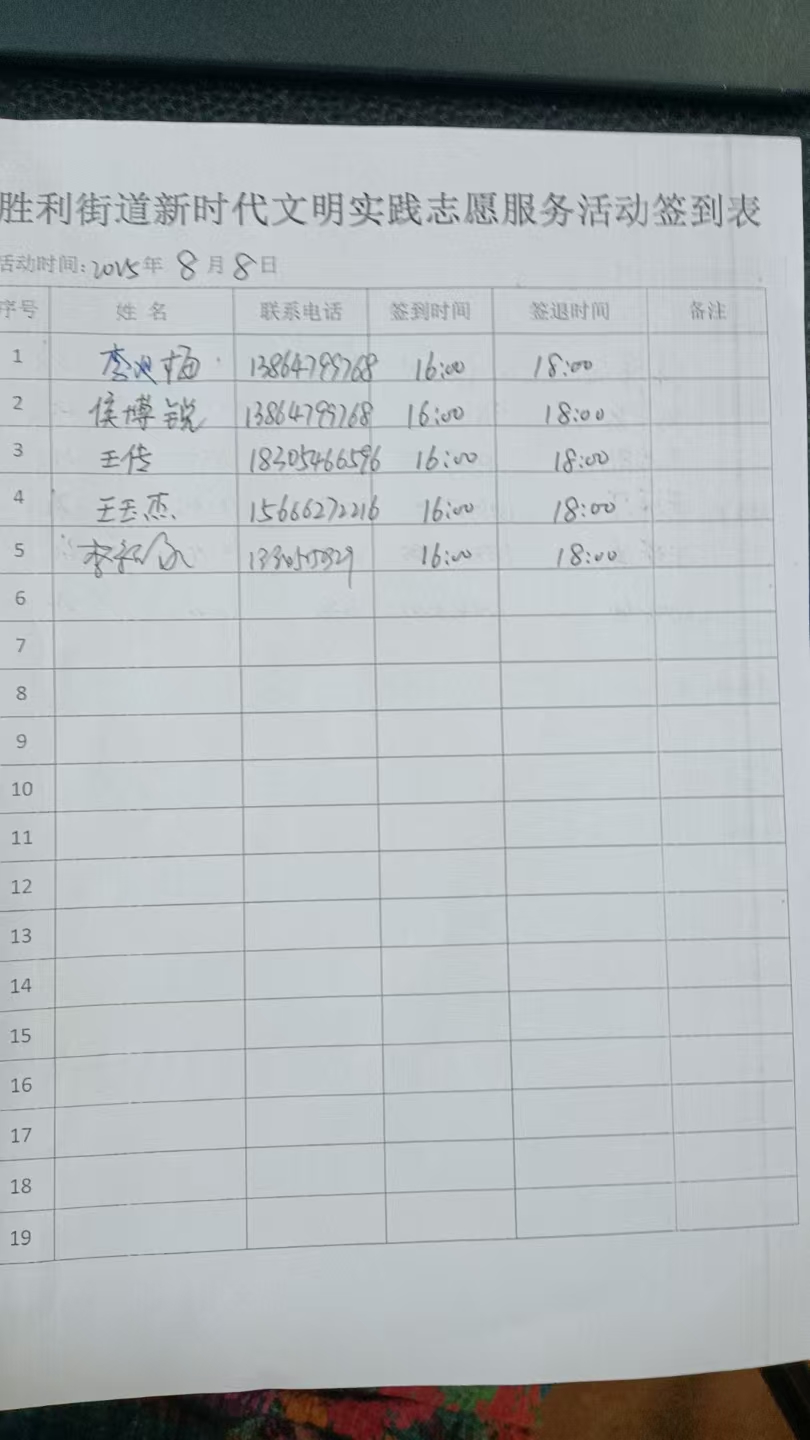 胜利街道新时代文明实践志愿服务活动签到表
活动时间:2025年 8月8日
序号 姓 名 联系电话 签到时间 签退时间 备注
1 13864799768 16:00 18:00
2 侯博锐 13864799768 16:00 18:00
3 王传 18305466596 16:00 18:00
4 王玉杰 15666272216 16:00 18:00
5 16:00 18:00
6
7
8
9
10
11
12
13
14
15
16
17
18
19